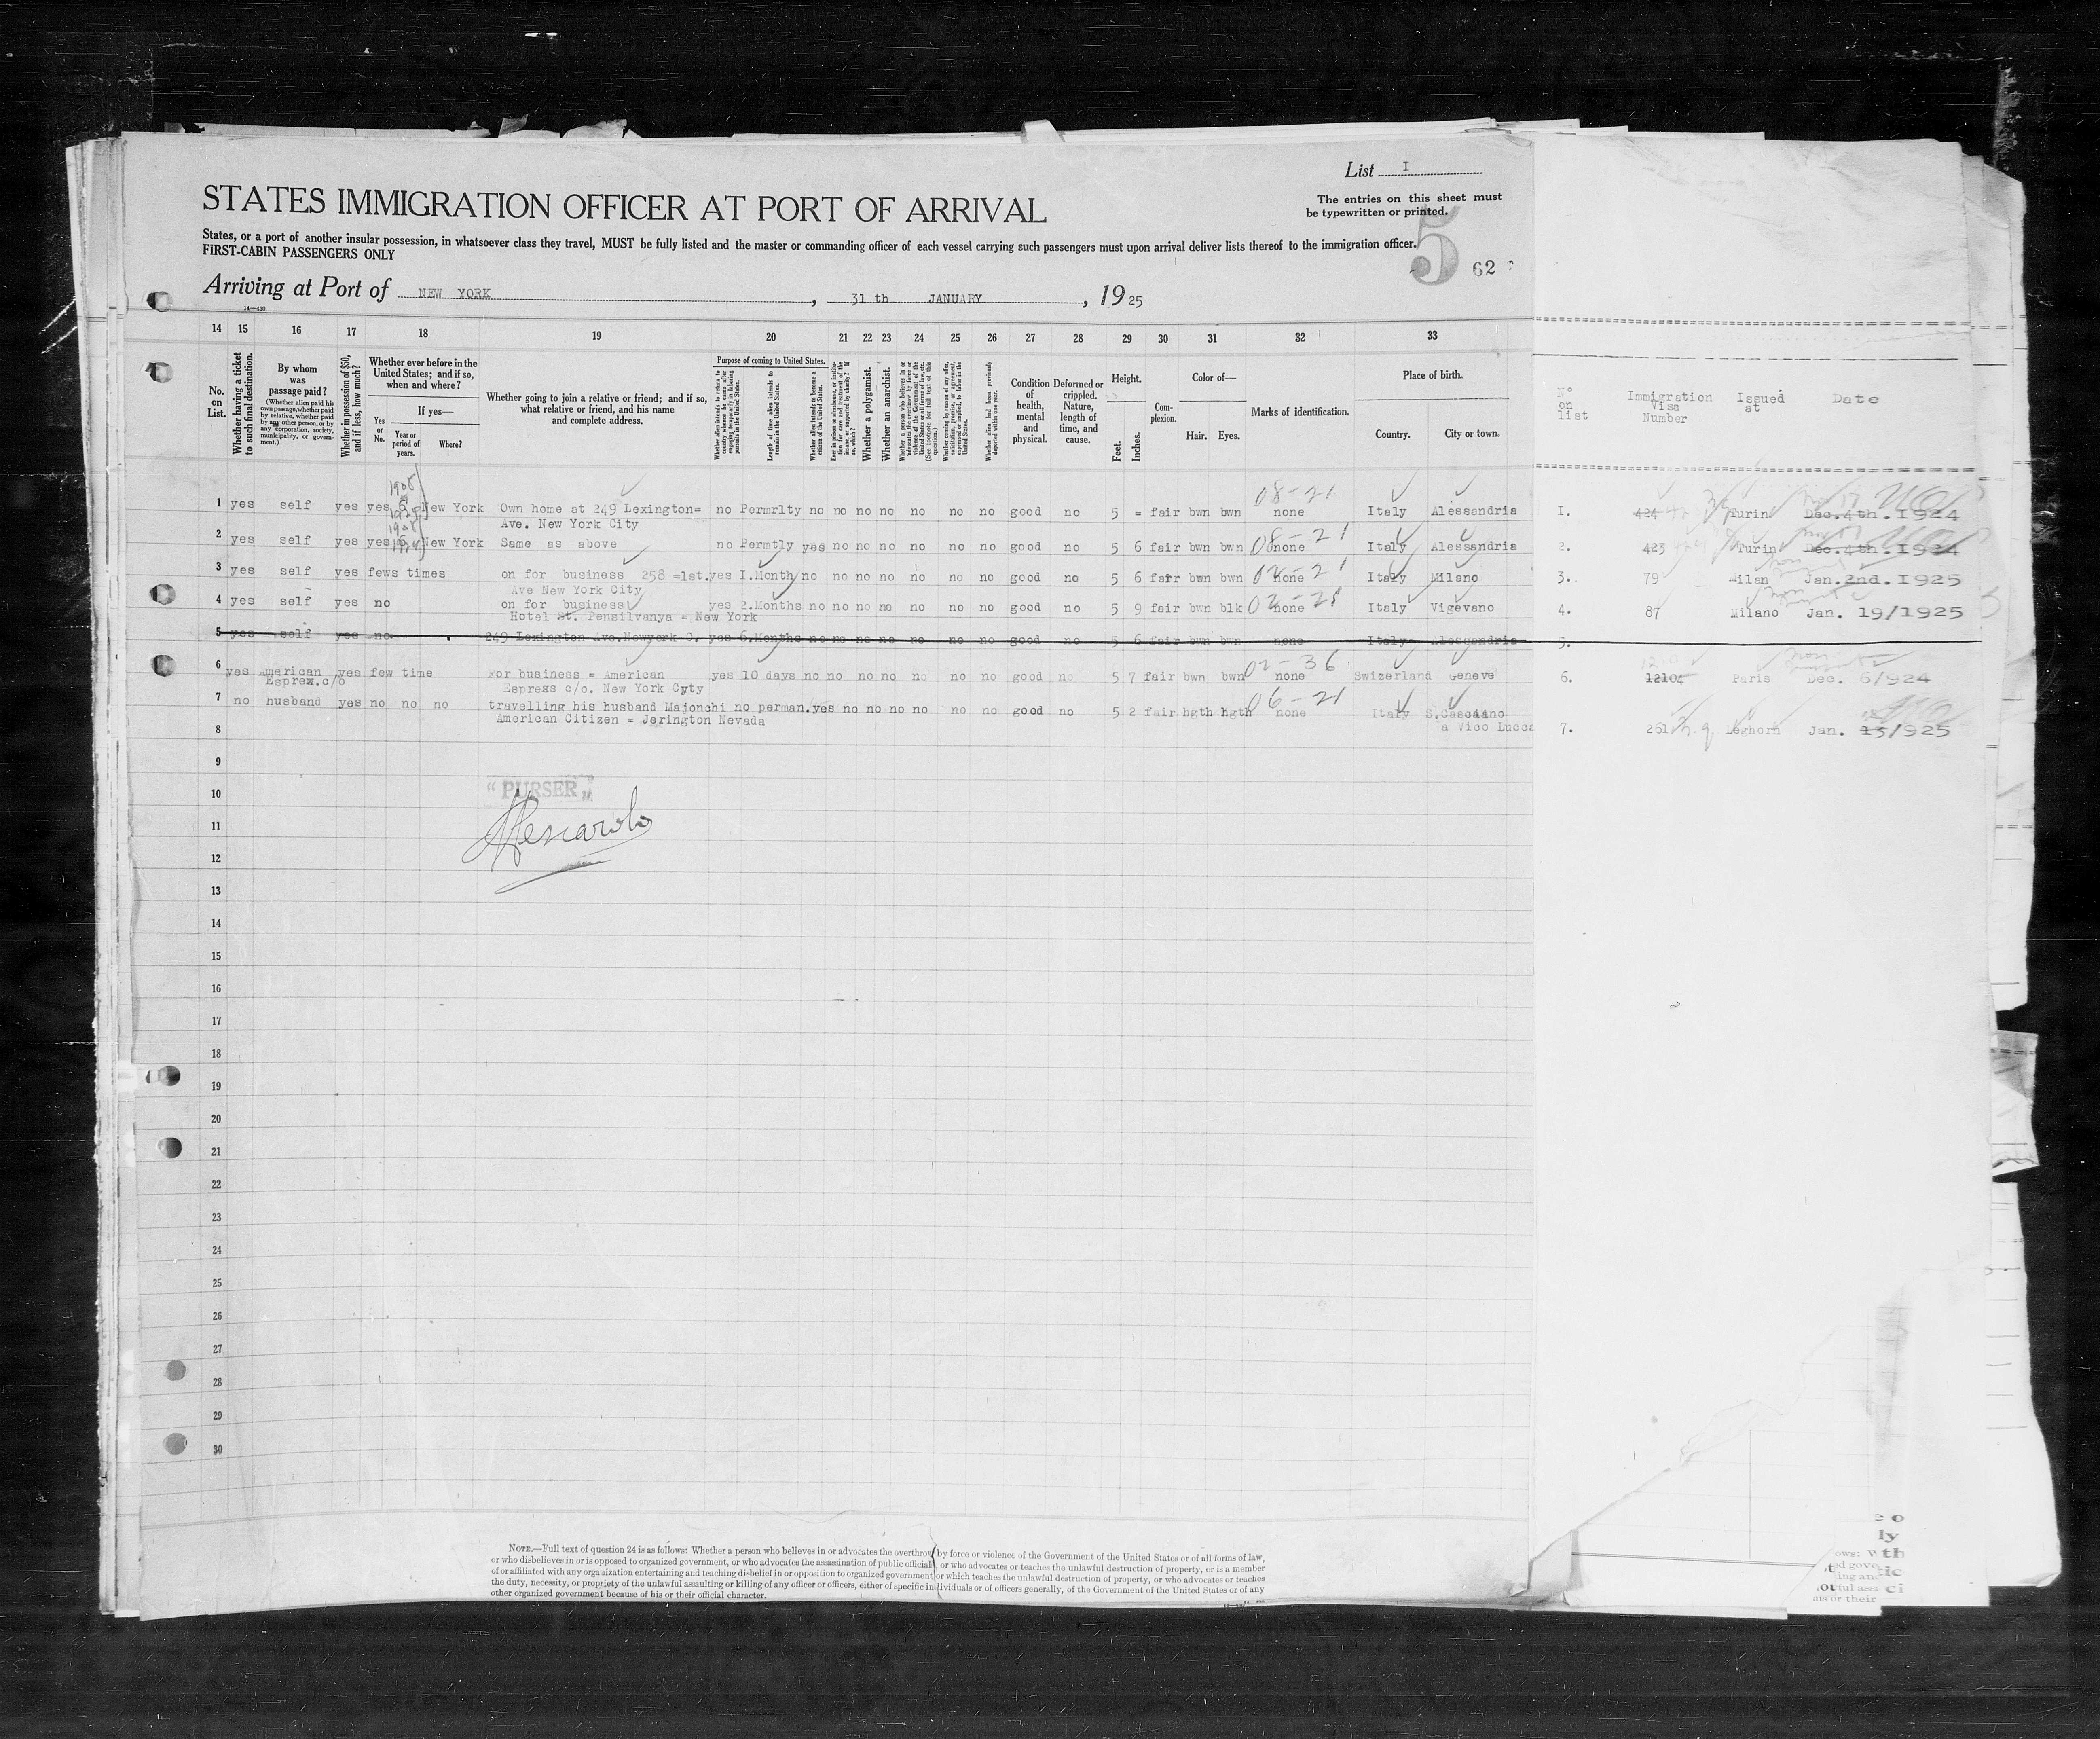 List I
STATES IMMIGRATION OFFICER AT PORT OF ARRIVAL
The entries on this sheet must
be typewritten or printed.
States, or a port of another insular possession, in whatsoever class they travel, MUST be fully listed and the master or commanding officer of each vessel carrying such passengers must upon arrival deliver lists thereof to the immigration officer.
FIRST-CABIN PASSENGERS ONLY
5 62
Arriving at Port of NEW YORK, 31 th JANUARY, 1925
14—430
14 15 16 17 18 19 20 21 22 23 24 25 26 27 28 29 30 31 32 33
No. on List.
Whether having a ticket to such final destination.
By whom was passage paid?
(Whether alien paid his own passage, whether paid by relative, whether paid by any other person, or by any corporation, society, municipality, or government.)
Whether in possession of $50, and if less, how much?
Whether ever before in the United States; and if so, when and where?
Yes or No.
If yes—
Year or period of years.
Where?
Whether going to join a relative or friend; and if so, what relative or friend, and his name and complete address.
Purpose of coming to United States.
Whether alien intends to return to country whence he came after engaging temporarily in laboring pursuits in the United States.
Length of time alien intends to remain in the United States.
Whether alien intends to become a citizen of the United States.
Ever in prison or almshouse, or institution for care and treatment of the insane, or supported by charity? If so, which?
Whether a polygamist.
Whether an anarchist.
Whether coming by reason of any offer, solicitation, promise, or agreement, expressed or implied, to labor in the United States.
Whether alien had been previously deported within one year.
Condition of health, mental and physical.
Deformed or crippled. Nature, length of time, and cause.
Height.
Feet. Inches.
Complexion.
Color of—
Hair. Eyes.
Marks of identification.
Place of birth.
Country. City or town.
N° on list
Immigration Visa Number
Issued at
Date
1 yes self yes yes New York Own home at 249 Lexington= no Permrlty no no no no no no no good no 5 = fair bwn bwn none 08-21 Italy Alessandria 1. 424 Turin Dec.4th.I924
Ave. New York City
2 yes self yes yes New York Same as above no Permtly yes no no no no no no good no 5 6 fair bwn bwn none 08-21 Italy Alessandria 2. 423 Turin Dec.4th.I924
3 yes self yes fews times on for business 258 =1st. yes I.Month no no no no no no no good no 5 6 fair bwn bwn none 02-21 Italy Milano 3. 79 Milan Jan.2nd.I925
Ave New York City
4 yes self yes no on for business yes 2.Months no no no no no no no good no 5 9 fair bwn blk none 02-21 Italy Vigevano 4. 87 Milano Jan. 19/1925
Hotel St. Pensilvanya = New York
5 yes self yes no 249 Lexington Ave.Newyork C. yes 6.Months no no no no no no no good no 5 6 fair bwn bwn none Italy Alessandria 5.
6 yes merican yes few time For business = American yes 10 days no no no no no no no good no 5 7 fair bwn bwn none 02-36 Swizerland Geneve 6. 12104 Paris Dec. 6/924
Esprex.c/o Esprexs c/o. New York Cyty
7 no husband yes no no no travelling his husband Majonchi no perman. yes no no no no no no good no 5 2 fair hgth hgth none 06-21 Italy S.Casciano 7. 261 Leghorn Jan. 13/925
American Citizen = Jerington Nevada a Vico Lucca
8
9
10 "PURSER"
11
12
13
14
15
16
17
18
19
20
21
22
23
24
25
26
27
28
29
30
NOTE.—Full text of question 24 is as follows: Whether a person who believes in or advocates the overthrow by force or violence of the Government of the United States or of all forms of law,
or who disbelieves in or is opposed to organized government, or who advocates the assassination of public officials, or who advocates or teaches the unlawful destruction of property, or is a member
of or affiliated with any organization entertaining and teaching disbelief in or opposition to organized government or which teaches the unlawful destruction of property, or who advocates or teaches
the duty, necessity, or propriety of the unlawful assaulting or killing of any officer or officers, either of specific individuals or of officers generally, of the Government of the United States or of any
other organized government because of his or their official character.